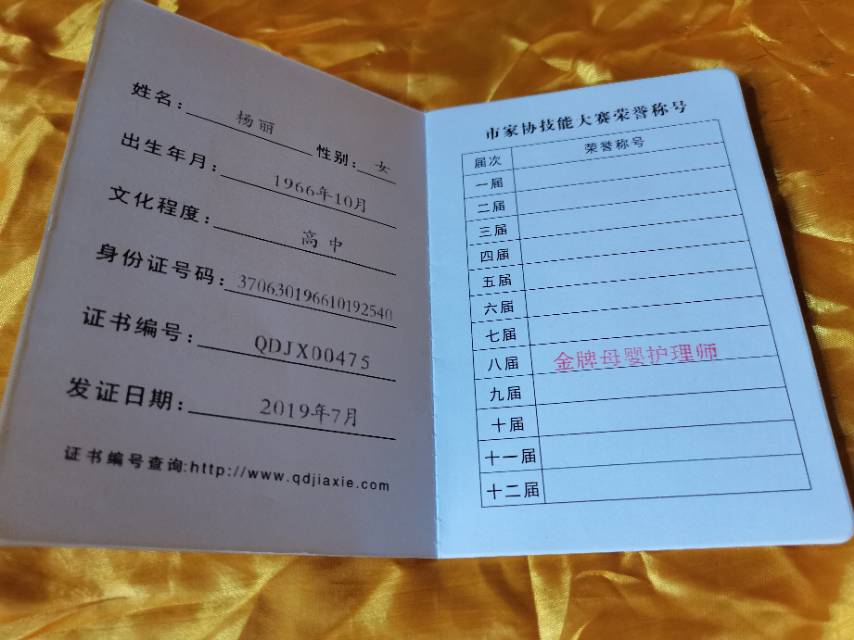 姓名：杨丽 性别：女
出生年月：1966年10月
文化程度：高中
身份证号码：370630196610192540
证书编号：QDJX00475
发证日期：2019年7月
证书编号查询:http://www.qdjiaxie.com
市家协技能大赛荣誉称号
届次 荣誉称号
一届
二届
三届
四届
五届
六届
七届
八届 金牌母婴护理师
九届
十届
十一届
十二届